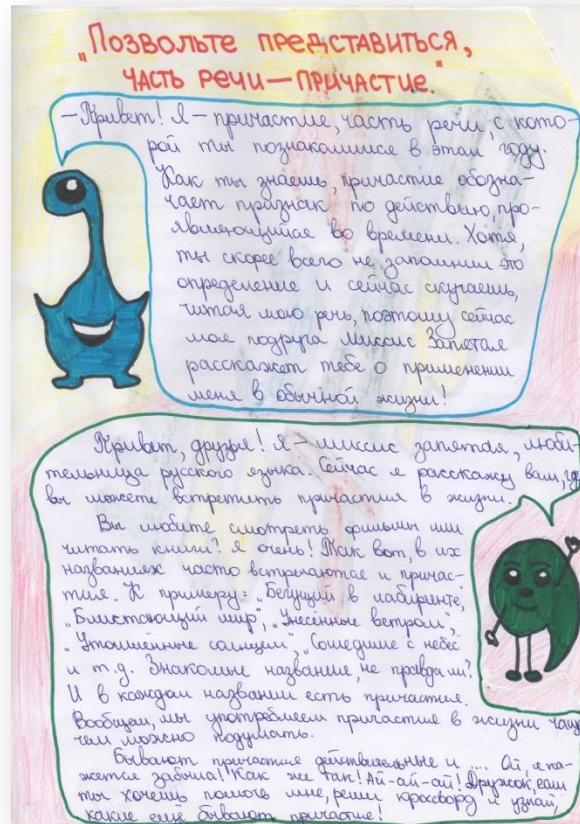 „Позвольте представиться,
часть речи — причастие."
– Привет! Я – причастие, часть речи, с кото-
рой ты познакомишься в этом году.
Как ты знаешь, причастие обозна-
чает признак по действию, про-
являющийся во времени. Хотя,
ты скорее всего не запомнил это
определение и сейчас скучаешь,
читая мою речь, поэтому сейчас
моя подруга Миссис Запятая
расскажет тебе о применении
меня в обычной жизни!
Привет, друзья! Я – миссис запятая, люби-
тельница русского языка. Сейчас я расскажу вам, где
вы можете встретить причастия в жизни.
Вы любите смотреть фильмы или
читать книги? я очень! Так вот, в их
названиях часто встречаются и причас-
тия. К примеру: „Бегущий в лабиринте,
„Блистающий мир", „Унесённые ветром",
„Утомлённые солнцем", „Сошедшие с небес
и т.д. Знакомые название, не правда ли?
И в каждом названии есть причастие.
Вообщем, мы употребляем причастие в жизни чаще
чем можно подумать.
Бывают причастия действительные и .... Ай, я ка-
жется забыла! Как же так! Ай-ай-ай! Дружок, если
ты хочешь помочь мне, реши кроссворд и узнай,
какие ещё бывают причастие!